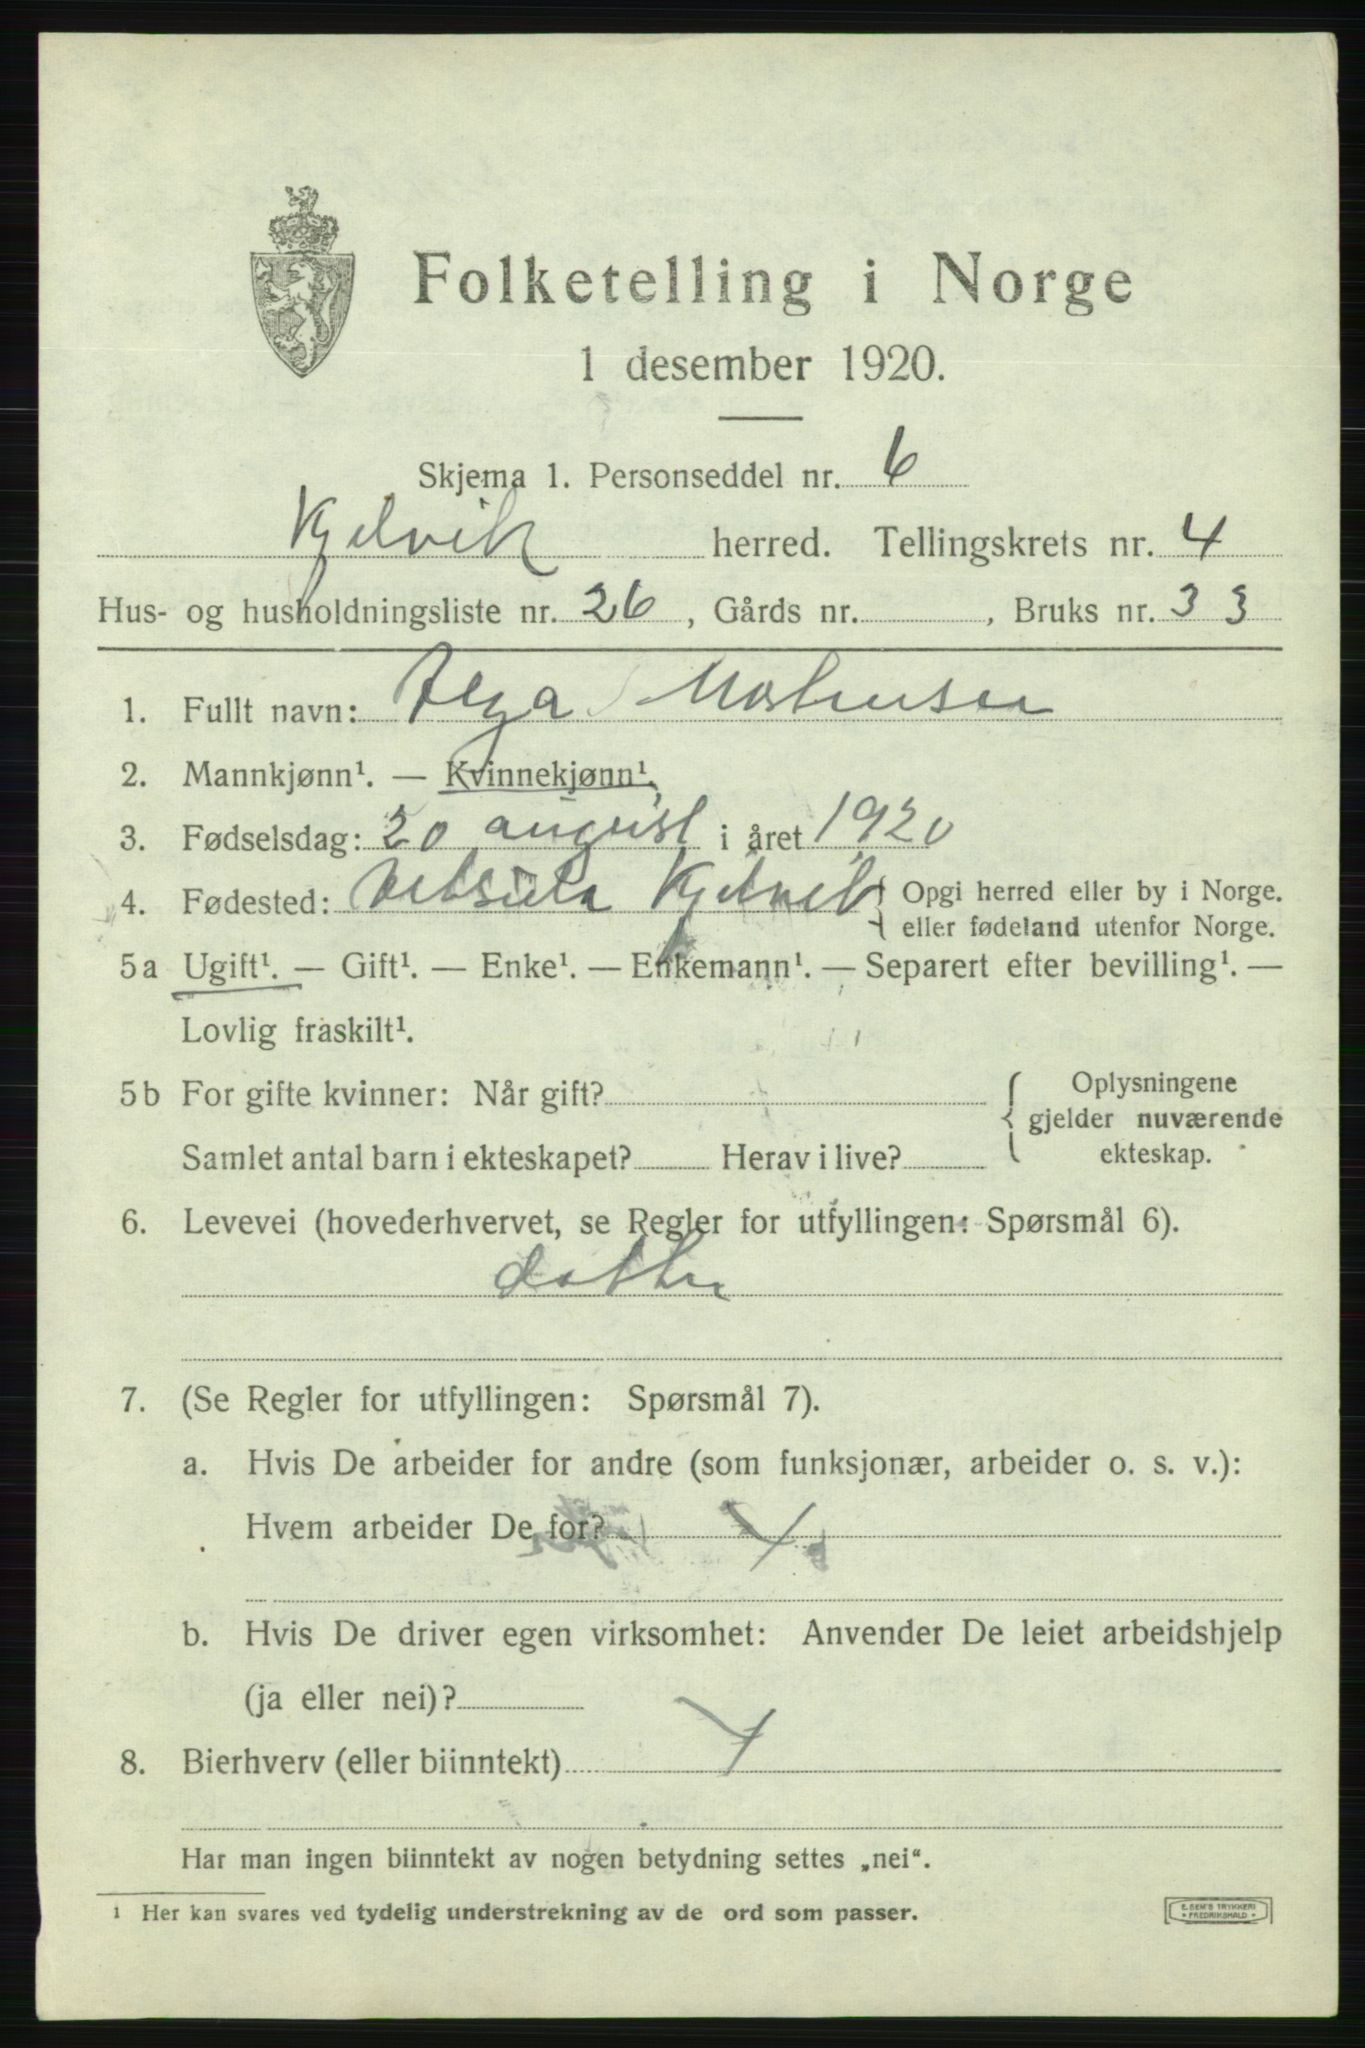 Folketelling i Norge
1 desember 1920.
Skjema 1. Personseddel nr. 6
Kjelvik herred. Tellingskrets nr. 4
Hus- og husholdningsliste nr. 26, Gårds nr. , Bruks nr. 33
1. Fullt navn:
2. Mannkjønn¹. — Kvinnekjønn¹.
3. Fødselsdag: 20 august i året 1920
4. Fødested: Kjelvik { Opgi herred eller by i Norge.
eller fødeland utenfor Norge.
5a Ugift¹. — Gift¹. — Enke¹. — Enkemann¹. — Separert efter bevilling¹. —
Lovlig fraskilt¹.
5b For gifte kvinner: Når gift? { Oplysningene
gjelder nuværende
Samlet antal barn i ekteskapet? Herav i live? ekteskap.
6. Levevei (hovederhvervet, se Regler for utfyllingen: Spørsmål 6).
datter
7. (Se Regler for utfyllingen: Spørsmål 7).
a. Hvis De arbeider for andre (som funksjonær, arbeider o. s. v.):
Hvem arbeider De for?
b. Hvis De driver egen virksomhet: Anvender De leiet arbeidshjelp
(ja eller nei)?
8. Bierhverv (eller biinntekt)
Har man ingen biinntekt av nogen betydning settes „nei“.
¹ Her kan svares ved tydelig understrekning av de ord som passer.
E. SEM'S TRYKKERI
FREDRIKSHALD